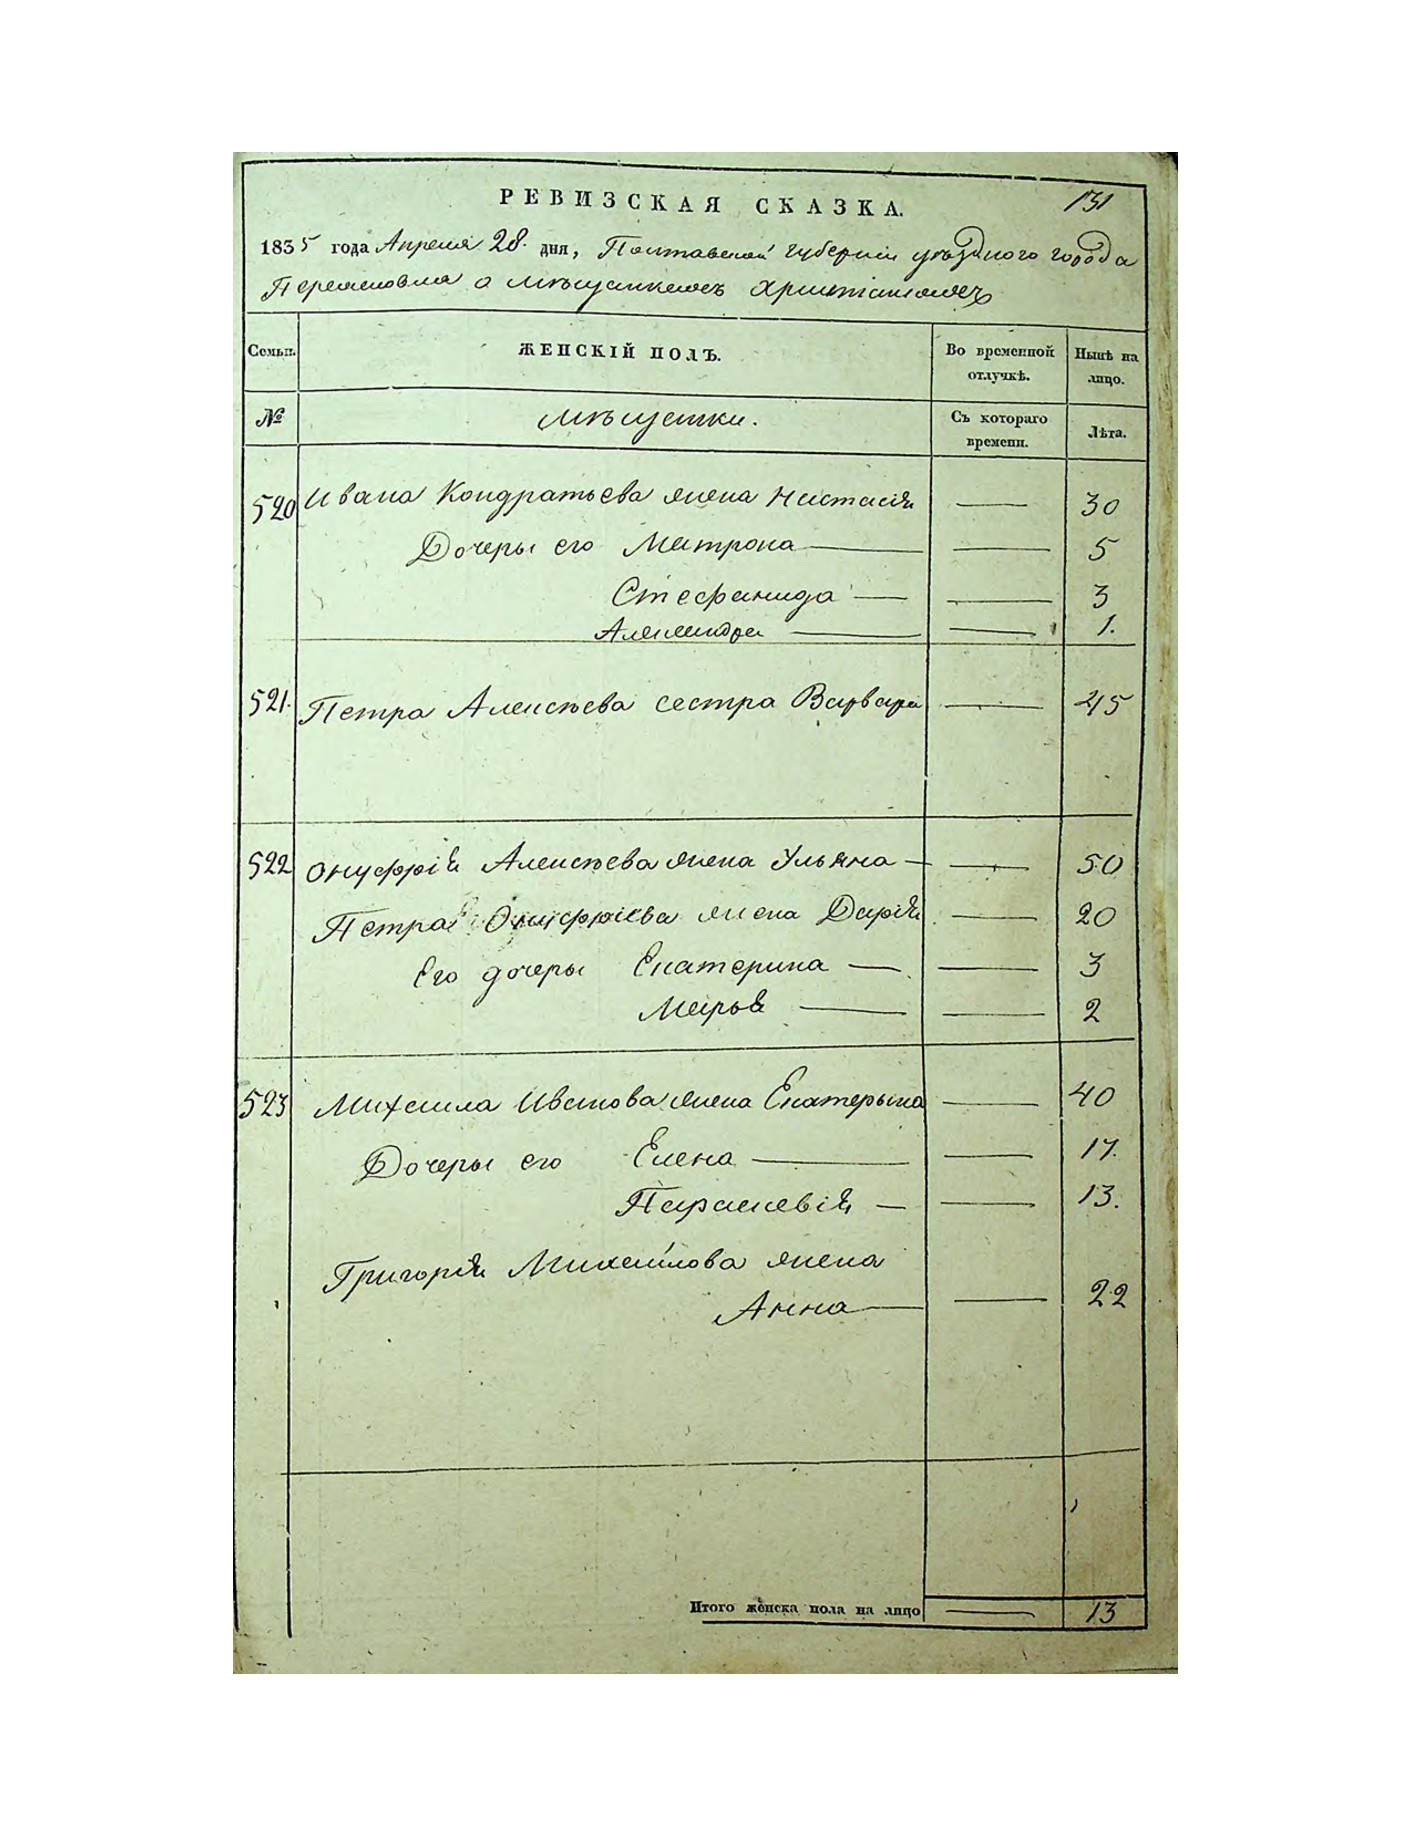 РЕВИЗСКАЯ СКАЗКА.
131
1835 года Апреля 28. дня, Полтавской губернии уѣзднаго города
Переяславля о мѣщанкахъ христіанкахъ
Семьи.
ЖЕНСКІЙ ПОЛЪ.
Во временной отлучкѣ.
Нынѣ на лицо.
№
мѣщанки.
Съ котораго времени.
Лѣта.
520 Ивана Кондратьева жена Настасія — 30
Дочеры его Матрона — — 5
Стефанида — — 3
Александра — — 1.
521. Петра Алексѣева сестра Варвара — 45
522 Онуфрія Алексѣева жена Ульяна — — 50
Петра Онуфріева жена Дарія — 20
Его дочеры Екатерина — — 3
Марья — — 2
523 Михаила Иванова жена Екатерына — 40
Дочеры его Елена — — 17.
Параскевія — — 13.
Григорія Михайлова жена
Анна — — 22
Итого женска пола на лицо — 13